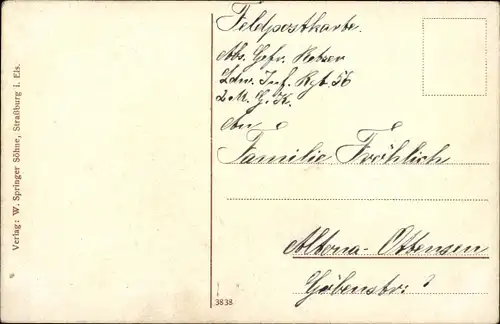 Feldpostkarte.
Abs. Gefr. Rebser
Ldw. Inf. Rgt. 56
2 M. G. K.
An
Familie Fröhlich
Altona-Ottensen
Göbenstr: 7
Verlag: W. Springer Söhne, Straßburg i. Els.
3838